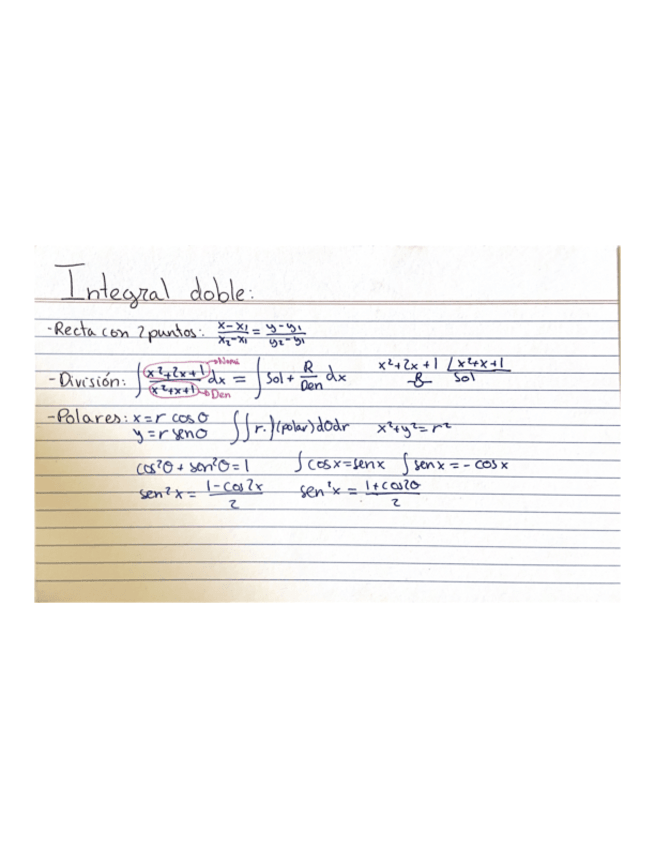 Integral doble:
-Recta con 2 puntos: (x-x1)/(x2-x1) = (y-y1)/(y2-y1)
-División: ∫ (x²+2x+1)/(x²+x+1) dx = ∫ Sol + R/Den dx    x²+2x+1 / x²+x+1
→Num →Den    R    Sol
-Polares: x=r cosθ
y=r senθ    ∫∫ r·f(polar)dθdr    x²+y²=r²
cos²θ + sen²θ=1    ∫cosx=senx    ∫senx=-cosx
sen²x = (1-cos2x)/2    sen²x = (1+cos2θ)/2